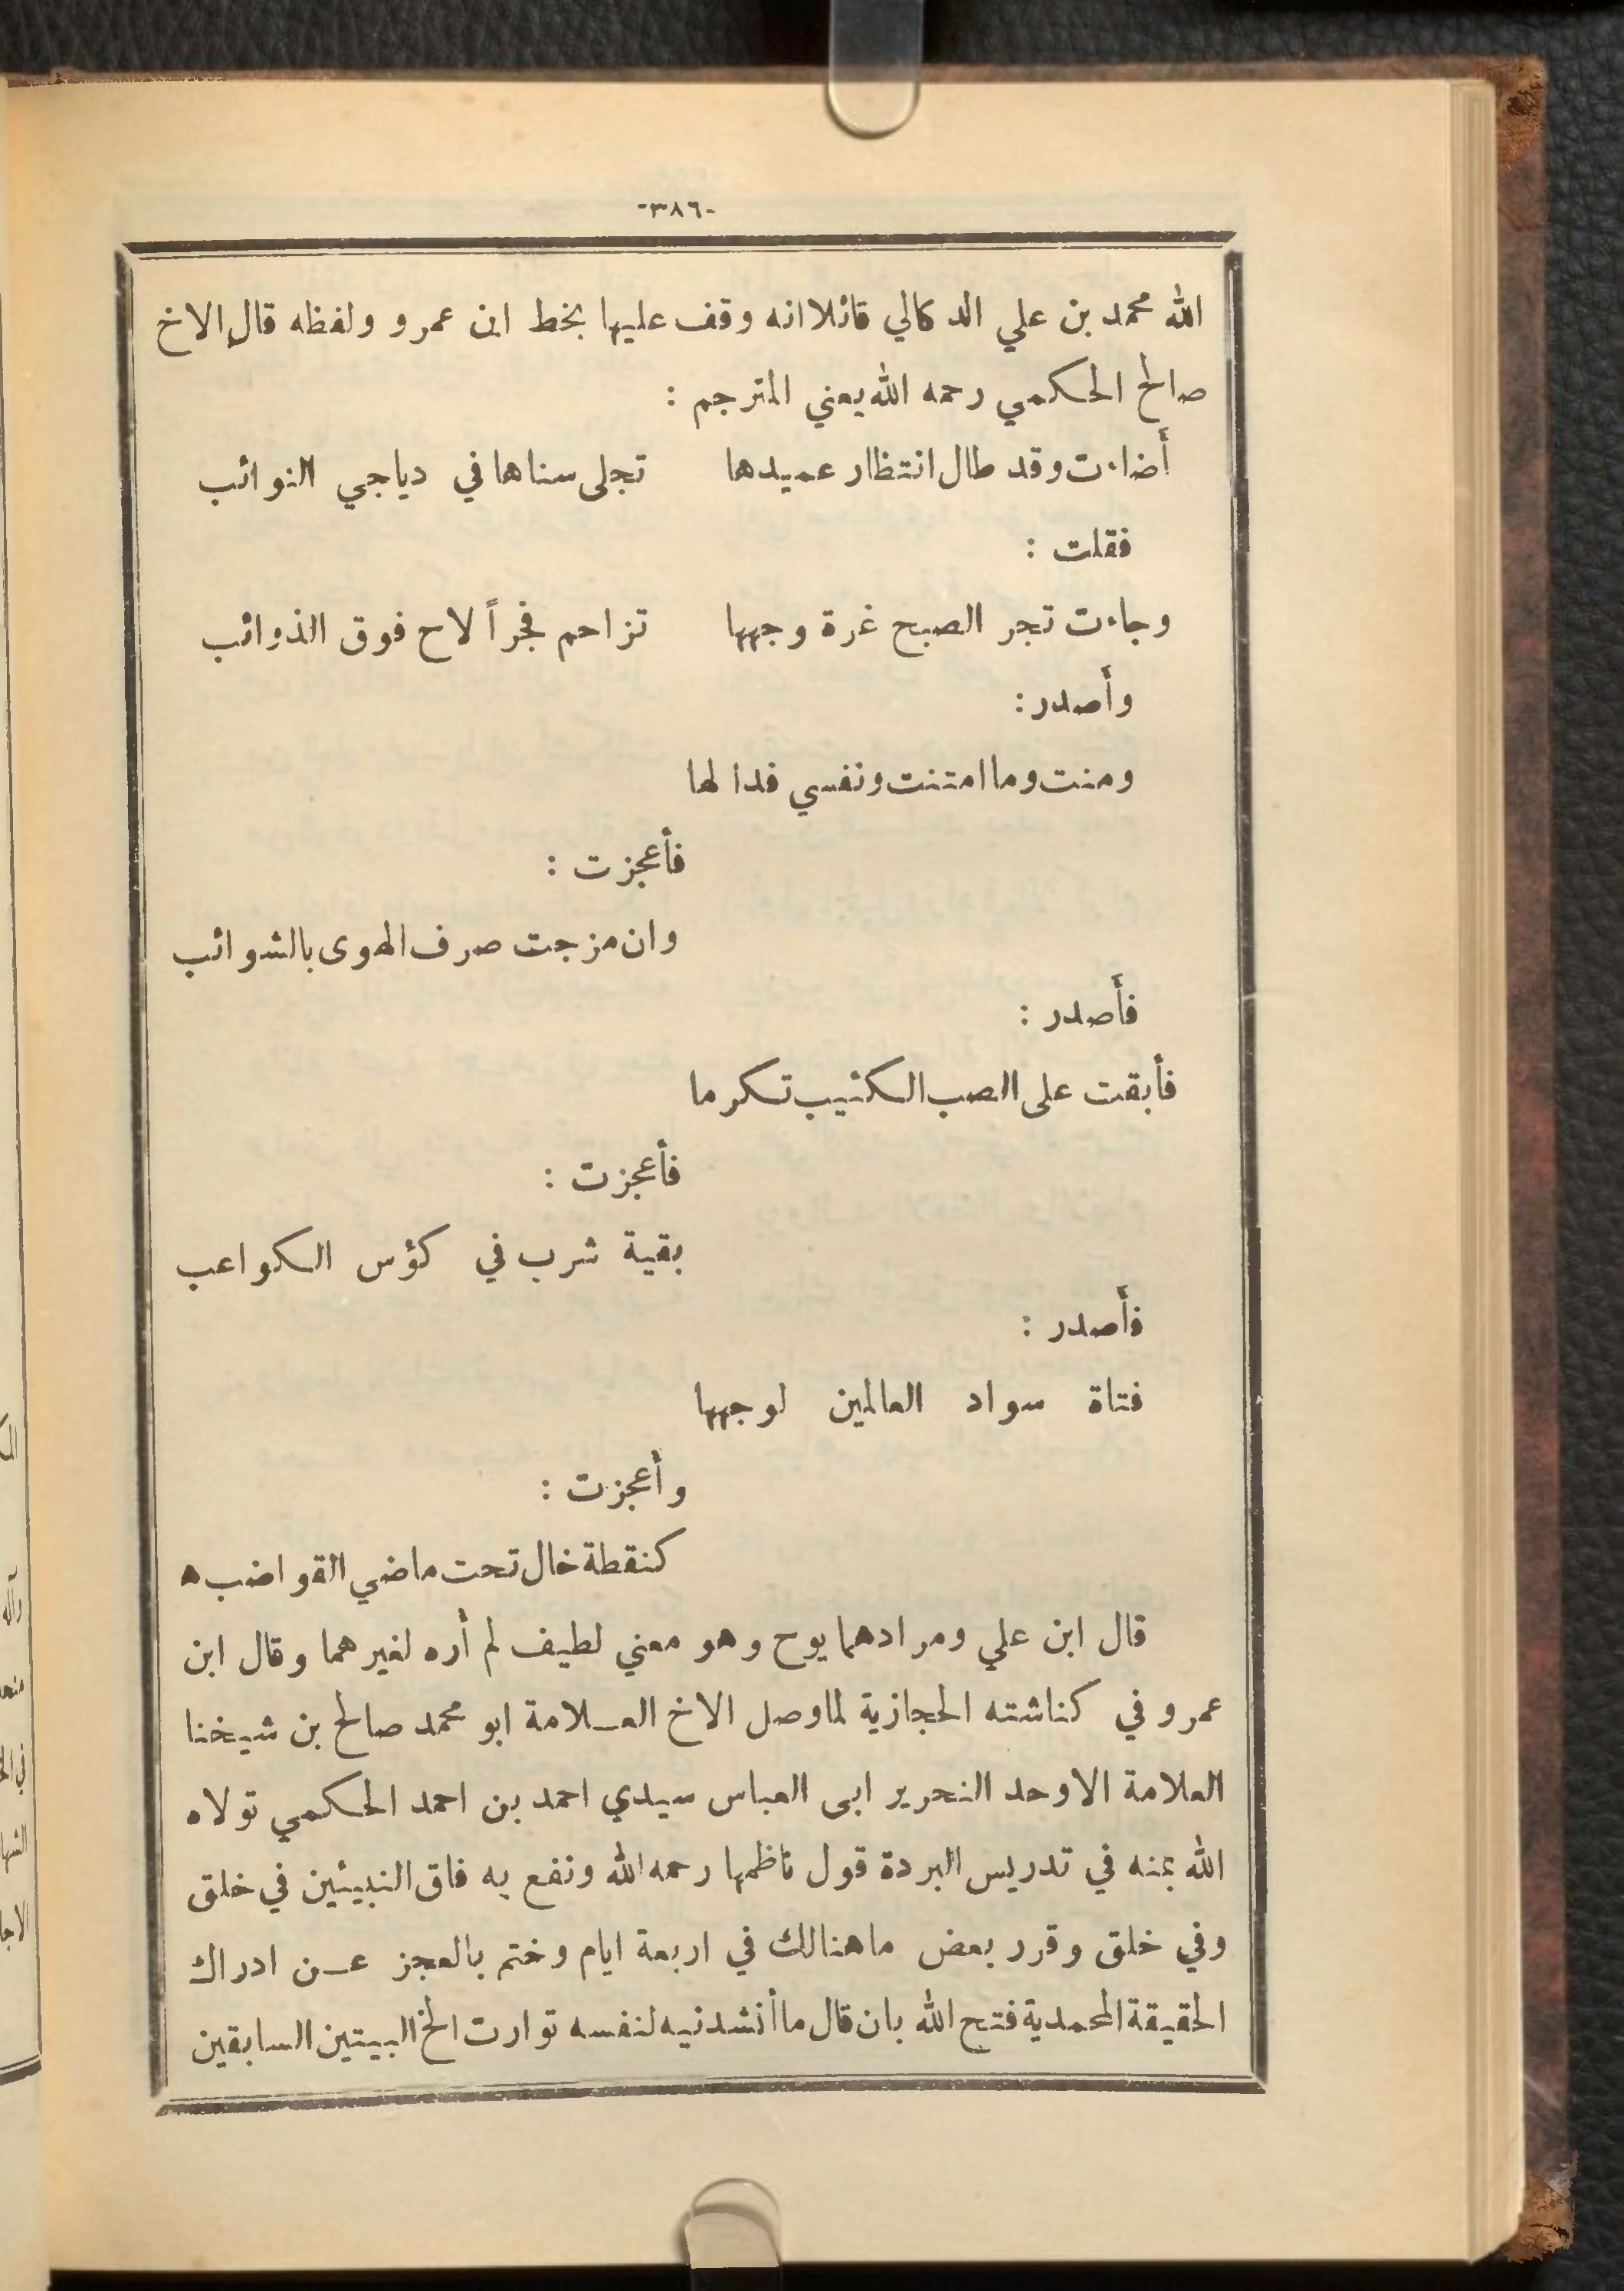 -٣٨٦-
الله محمد بن علي الدكالي قائلا انه وقف عليها بخط ابن عمرو ولفظه قال الاخ
صالح الحكمي رحمه الله يعني المترجم :
أضاءت وقد طال انتظار عميدها تجلى سناها في دياجي النوائب
فقلت :
وجاءت تجر الصبح غرة وجهها تزاحم فجراً لاح فوق الذوائب
وأصدر :
ومنت وما امتنت ونفسي فدا لها
فأعجزت :
وان مزجت صرف الهوى بالشوائب
فأصدر :
فأبقت على الصب الكئيب تكرما
فأعجزت :
بقية شرب في كؤس الكواعب
فأصدر :
فتاة سواد العالمين لوجهها
وأعجزت :
كنقطة خال تحت ماضي القواضب ه
قال ابن علي ومرادهما يوح وهو معني لطيف لم أره لغيرهما وقال ابن
عمرو في كناشته الحجازية لما وصل الاخ العلامة ابو محمد صالح بن شيخنا
العلامة الاوحد النحرير ابى العباس سيدي احمد بن احمد الحكمي تولاه
الله بمنه في تدريس البردة قول ناظمها رحمه الله ونفع به فاق النبيئين في خلق
وفي خلق وقرر بعض ما هنالك في اربعة ايام وختم بالعجز عن ادراك
الحقيقة المحمدية فتح الله بان قال ما أنشدنيه لنفسه توارت الخ البيتين السابقين